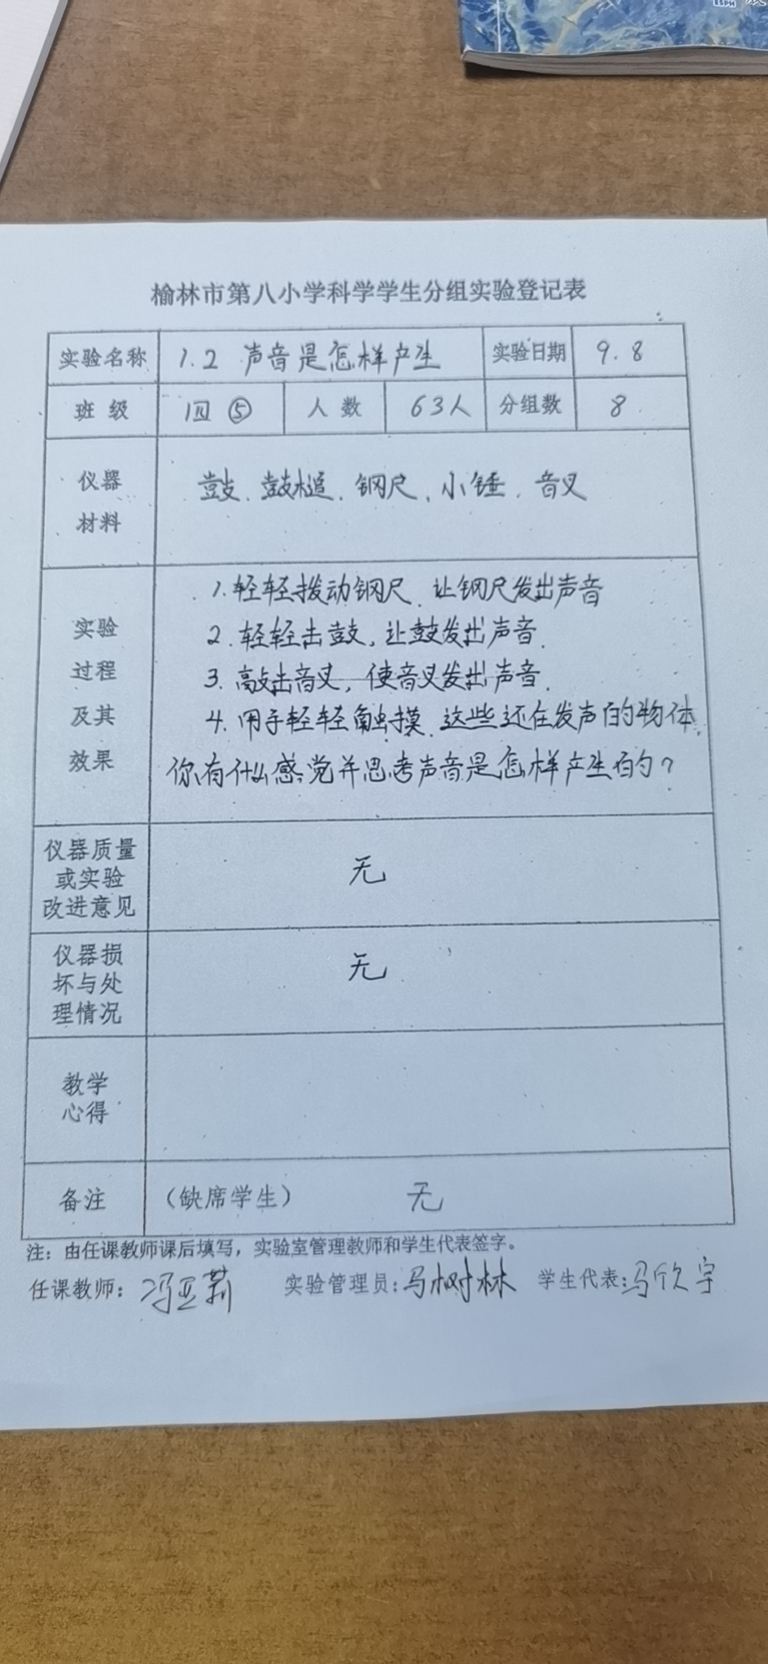 榆林市第八小学科学学生分组实验登记表
实验名称 1.2 声音是怎样产生 实验日期 9.8
班级 四⑤ 人数 63人 分组数 8
仪器
材料
鼓、鼓槌、钢尺、小锤、音叉
实验
过程
及其
效果
1.轻轻拨动钢尺、让钢尺发出声音
2.轻轻击鼓,让鼓发出声音.
3.敲击音叉,使音叉发出声音.
4.用手轻轻触摸、这些还在发声的物体,
你有什么感觉并思考声音是怎样产生的?
仪器质量
或实验
改进意见
无
仪器损
坏与处
理情况
无
教学
心得
备注 (缺席学生) 无
注:由任课教师课后填写,实验室管理教师和学生代表签字。
任课教师:冯亚莉 实验管理员:马树林 学生代表:马欣宇